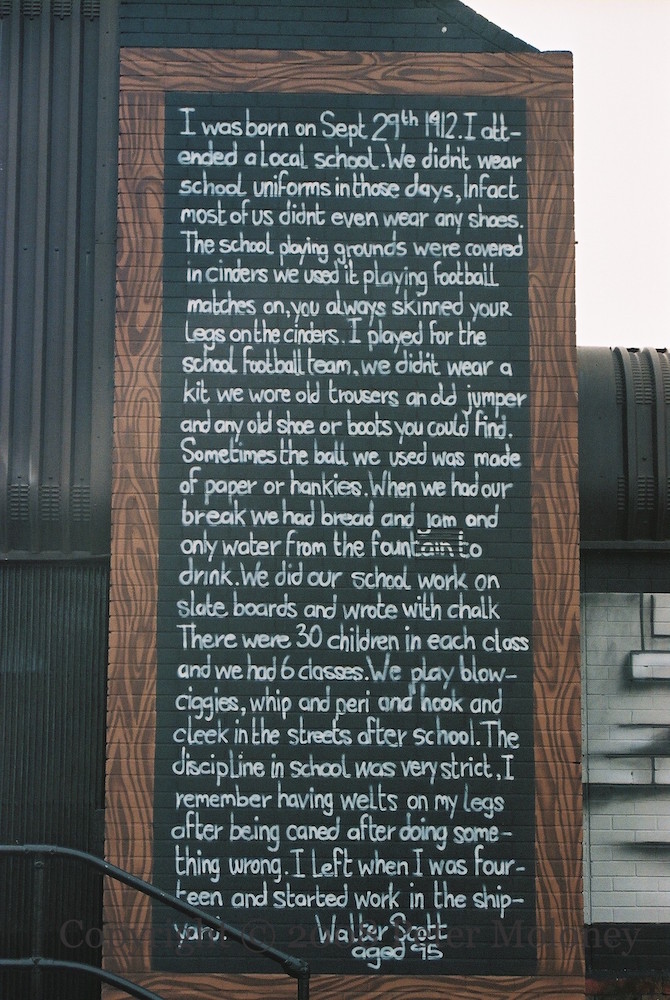 I was born on Sept 29th 1912. I att-
ended a local school. We didn't wear
school uniforms in those days, Infact
most of us didnt even wear any shoes.
The school playing grounds were covered
in cinders we used it playing football
matches on, you always skinned your
Legs on the cinders. I played for the
school football team, we didn't wear a
kit we wore old trousers an old jumper
and any old shoe or boots you could find.
Sometimes the ball we used was made
of paper or hankies. When we had our
break we had bread and jam and
only water from the fountain to
drink. We did our school work on
slate boards and wrote with chalk
There were 30 children in each class
and we had 6 classes. We play blow-
ciggies, whip and peri and hook and
cleek in the streets after school. The
discipline in school was very strict, I
remember having welts on my legs
after being caned after doing some-
thing wrong. I Left when I was four-
teen and started work in the ship-
yard. Walter Scott
aged 95
Copyright © Peter Moloney